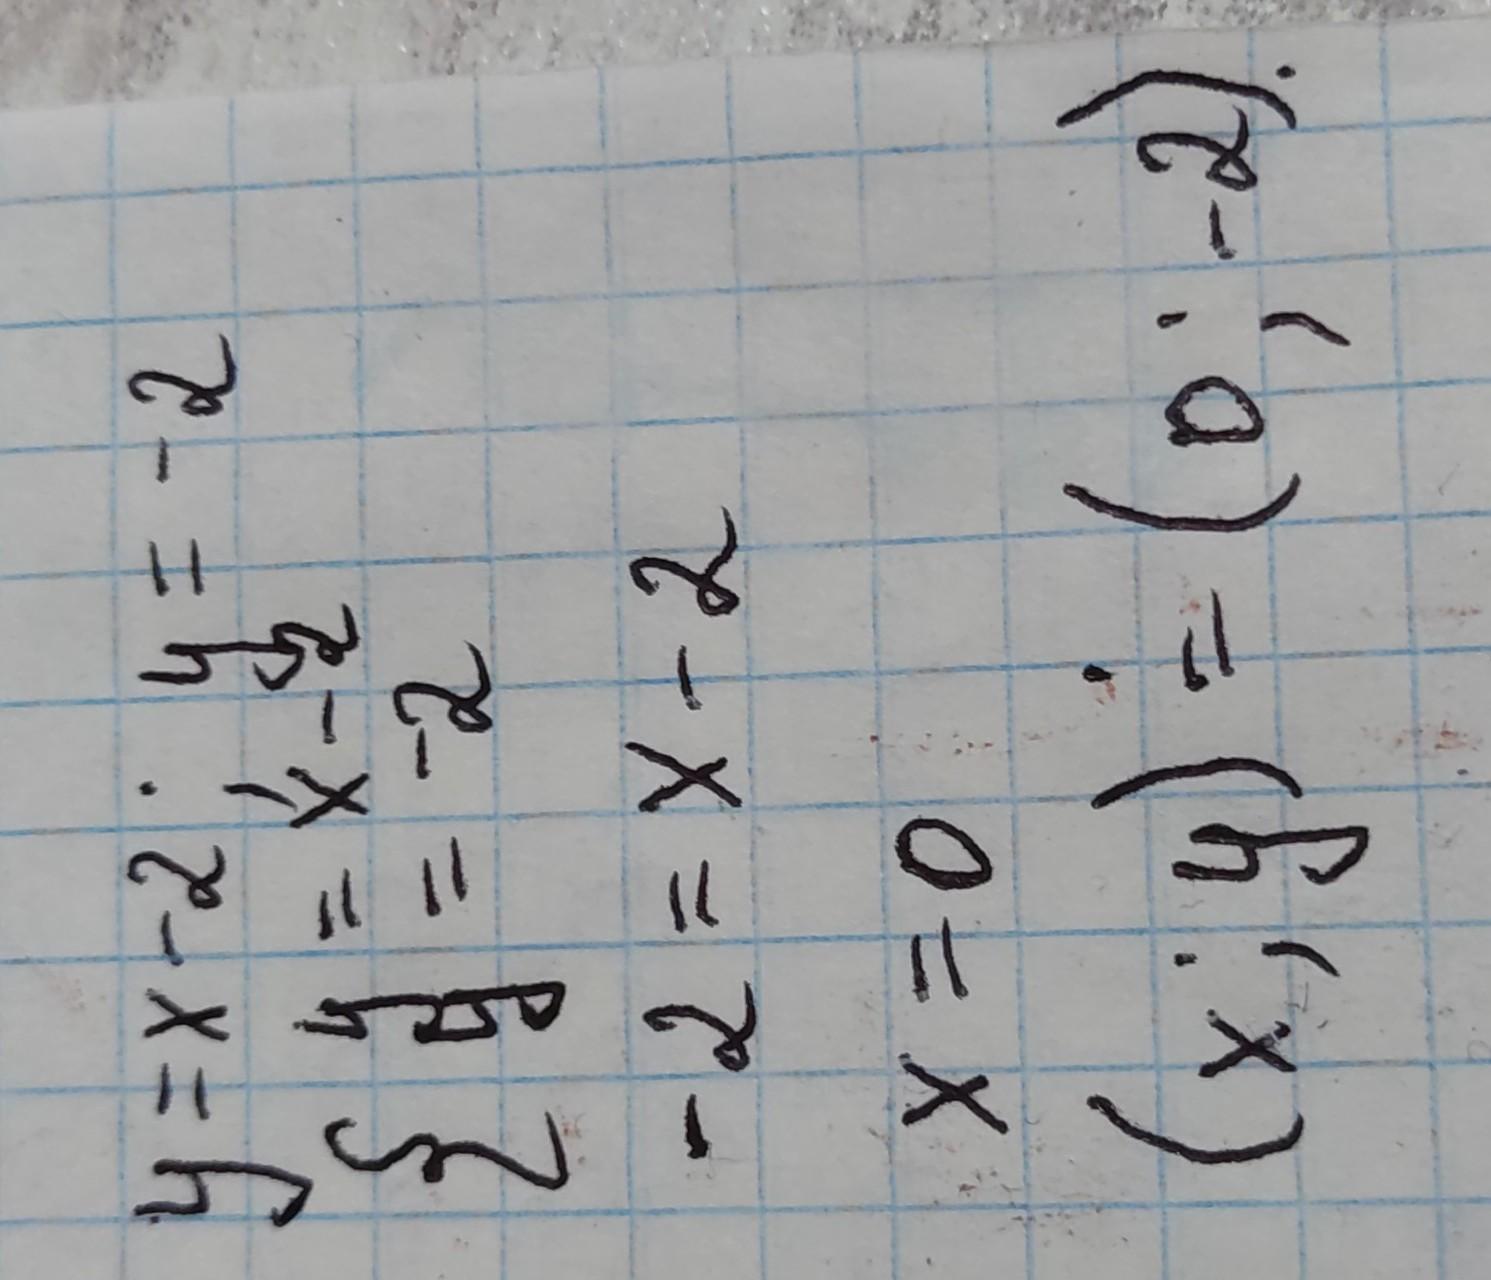 y = x - 2; y = -2
{ y = x - 2
y = -2
-2 = x - 2
x = 0
(x; y) = (0; -2).